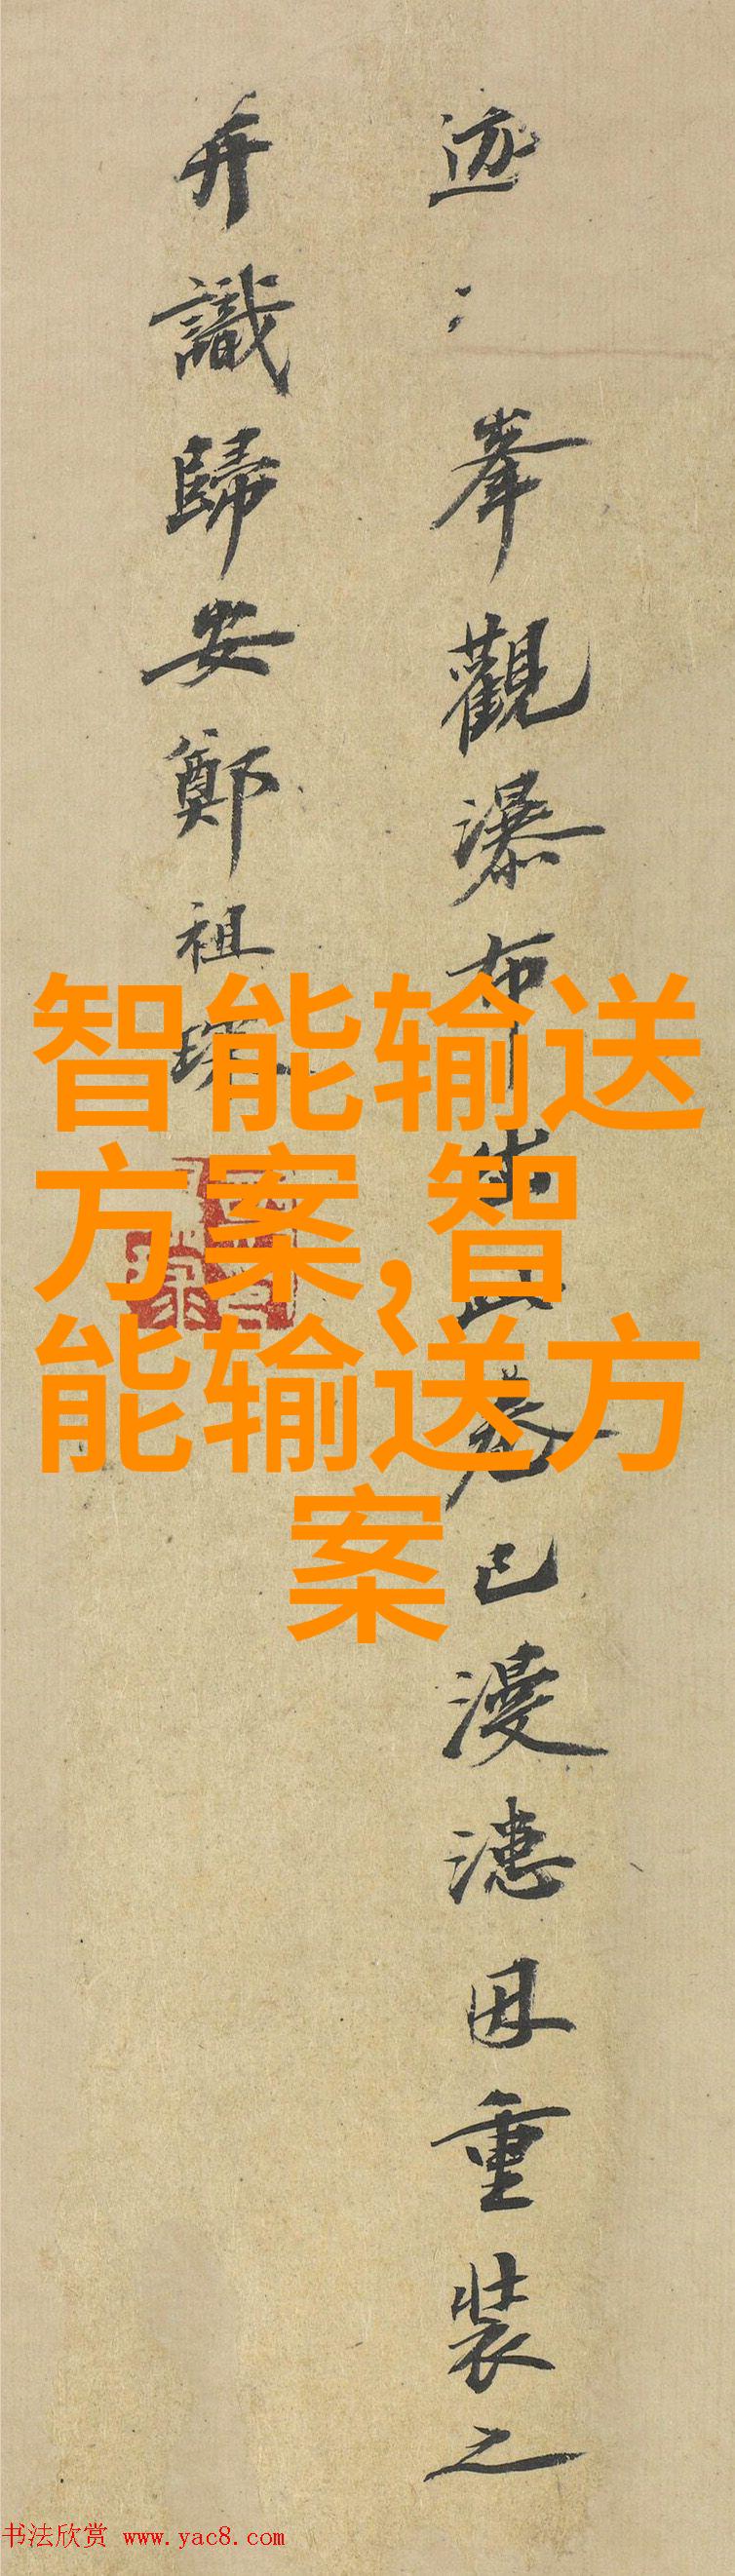 迹〻峯觀瀑布
卷已漫漶因重裝之
并識歸安鄭祖琛
智能输送
方案,智
能输送方
案
书法欣赏 www.yac8.com